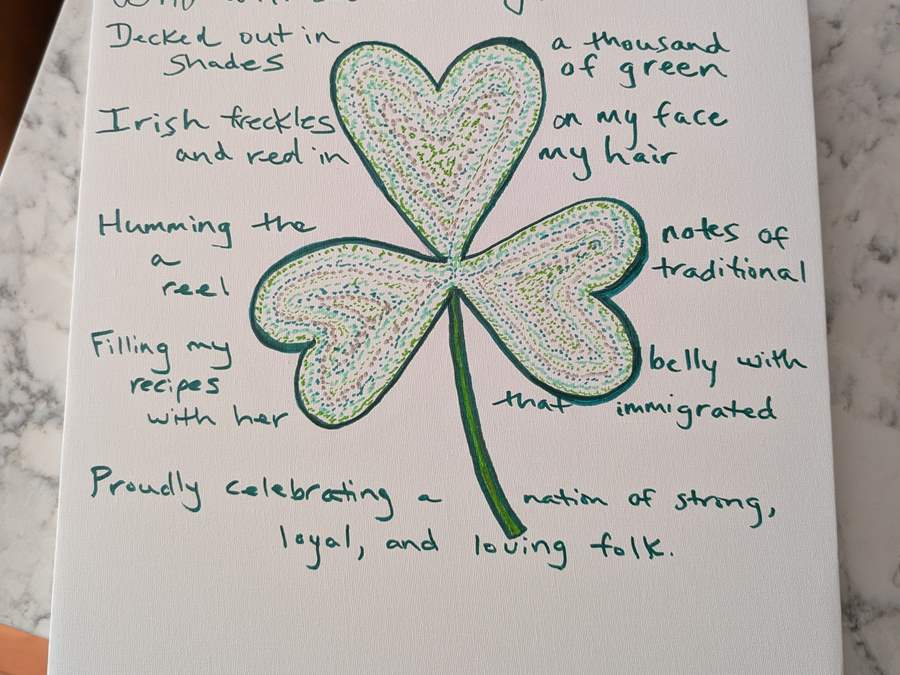 Decked out in a thousand
shades of green
Irish freckles on my face
and red in my hair
Humming the notes of
a traditional
reel
Filling my belly with
recipes that immigrated
with her
Proudly celebrating a nation of strong,
loyal, and loving folk.